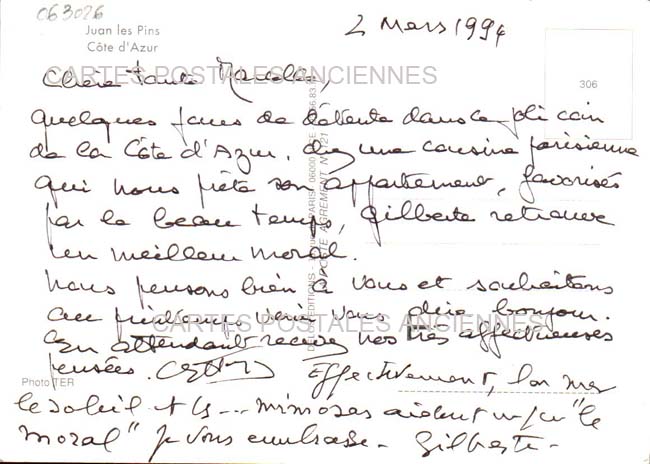 063026
Juan les Pins
Côte d'Azur
2 Mars 1994
306
Chère tante Marcelle,
CARTES POSTALES ANCIENNES
quelques jours de détente dans ce joli coin
de la Côte d'Azur, chez une cousine parisienne
qui nous prête son appartement, favorisés
par le beau temps, Gilberte retrouve
un meilleur moral.
Nous pensons bien à vous et souhaitons
au printemps venir vous dire bonjour.
CARTES POSTALES ANCIENNES
En attendant recevez nos très affectueuses
pensées.
Photo TER
Effectivement, la mer
le soleil et les... mimosas aident un peu "le
moral" je vous embrasse - Gilberte -